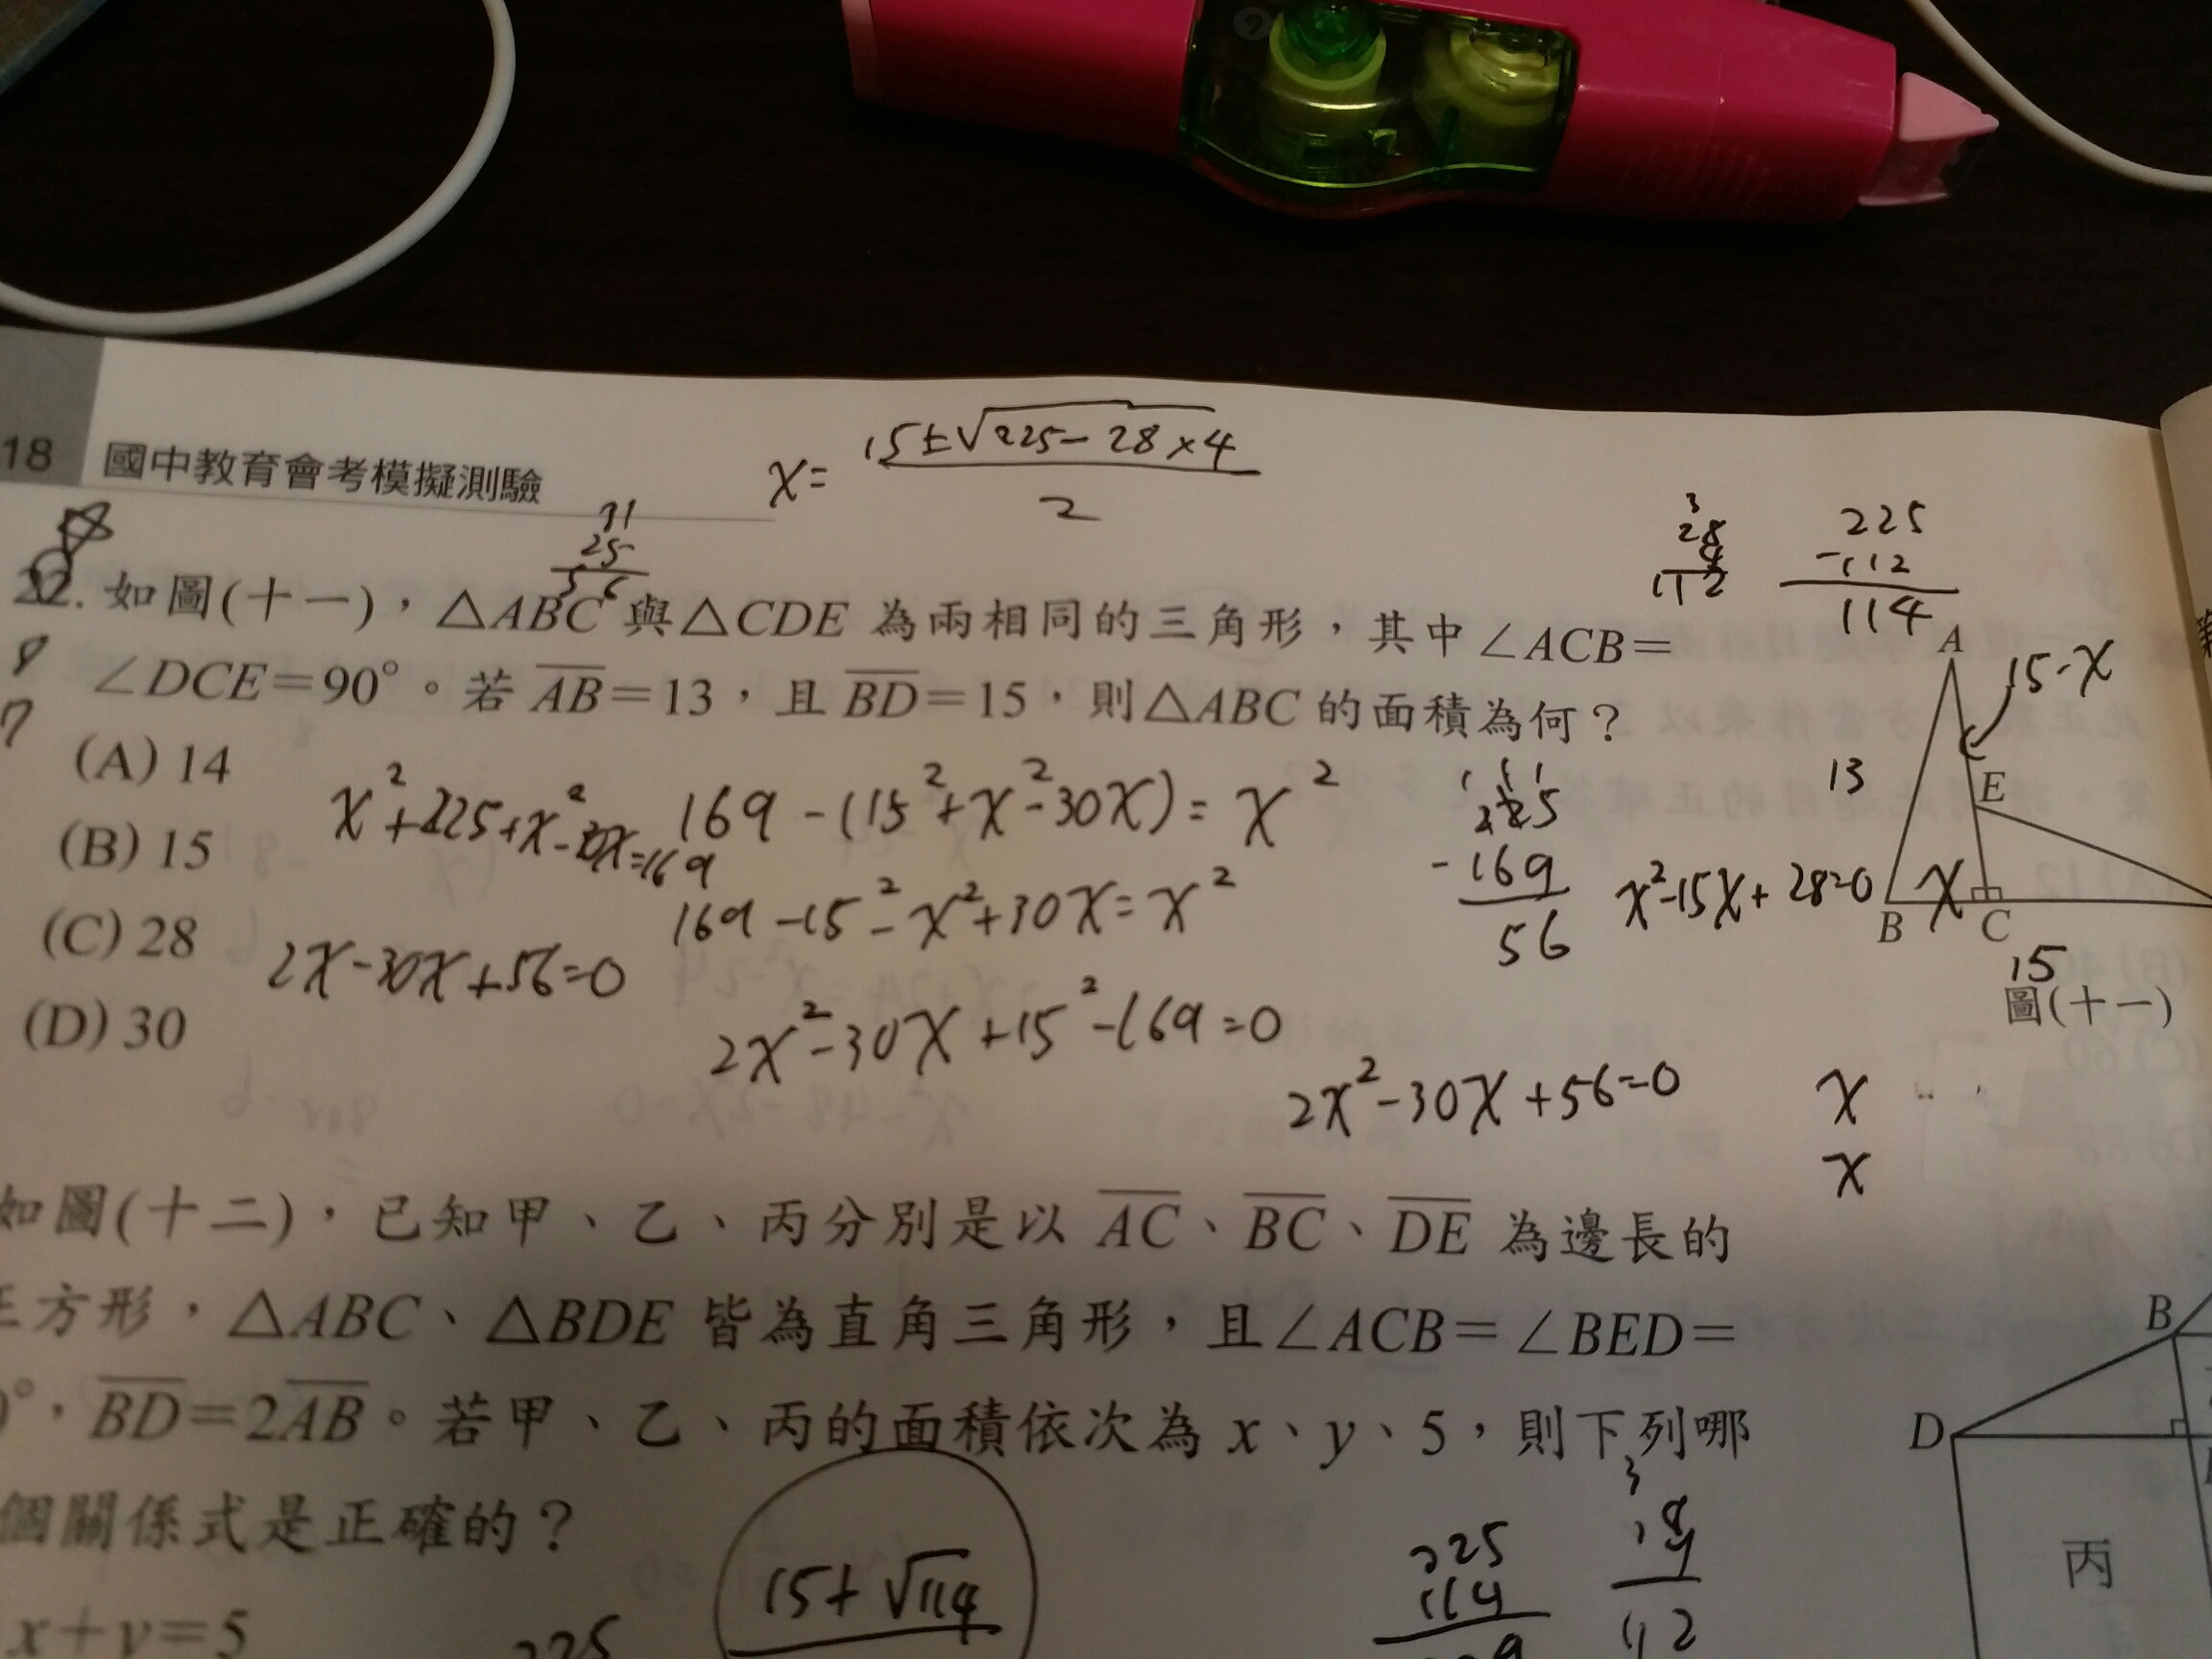 18 國中教育會考模擬測驗
x = 15±√225-28×4
2
31
25
56
3
28
4
112
225
-112
114
22. 如圖(十一)，△ABC 與△CDE 為兩相同的三角形，其中∠ACB=
8
7
∠DCE=90°。若 AB=13，且 BD=15，則△ABC 的面積為何？
(A) 14
(B) 15
(C) 28
(D) 30
x²+225+x²-30x=169
169-(15²+x²-30x)=x²
169-15²-x²+30x=x²
2x-30x+56=0
2x²-30x+15²-169=0
2x²-30x+56=0
225
-169
56
x²-15x+28=0
A
15-x
13
E
B
x
C
15
圖(十一)
x
x
如圖(十二)，已知甲、乙、丙分別是以 AC、BC、DE 為邊長的
正方形，△ABC、△BDE 皆為直角三角形，且∠ACB=∠BED=
0°，BD=2AB。若甲、乙、丙的面積依次為 x、y、5，則下列哪
個關係式是正確的？
x+y=5
225
15+√114
225
114
3
28
4
112
B
D
丙